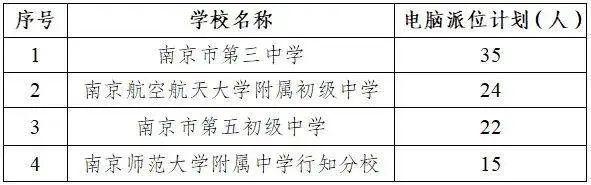 序号 学校名称 电脑派位计划（人）
1 南京市第三中学 35
2 南京航空航天大学附属初级中学 24
3 南京市第五初级中学 22
4 南京师范大学附属中学行知分校 15